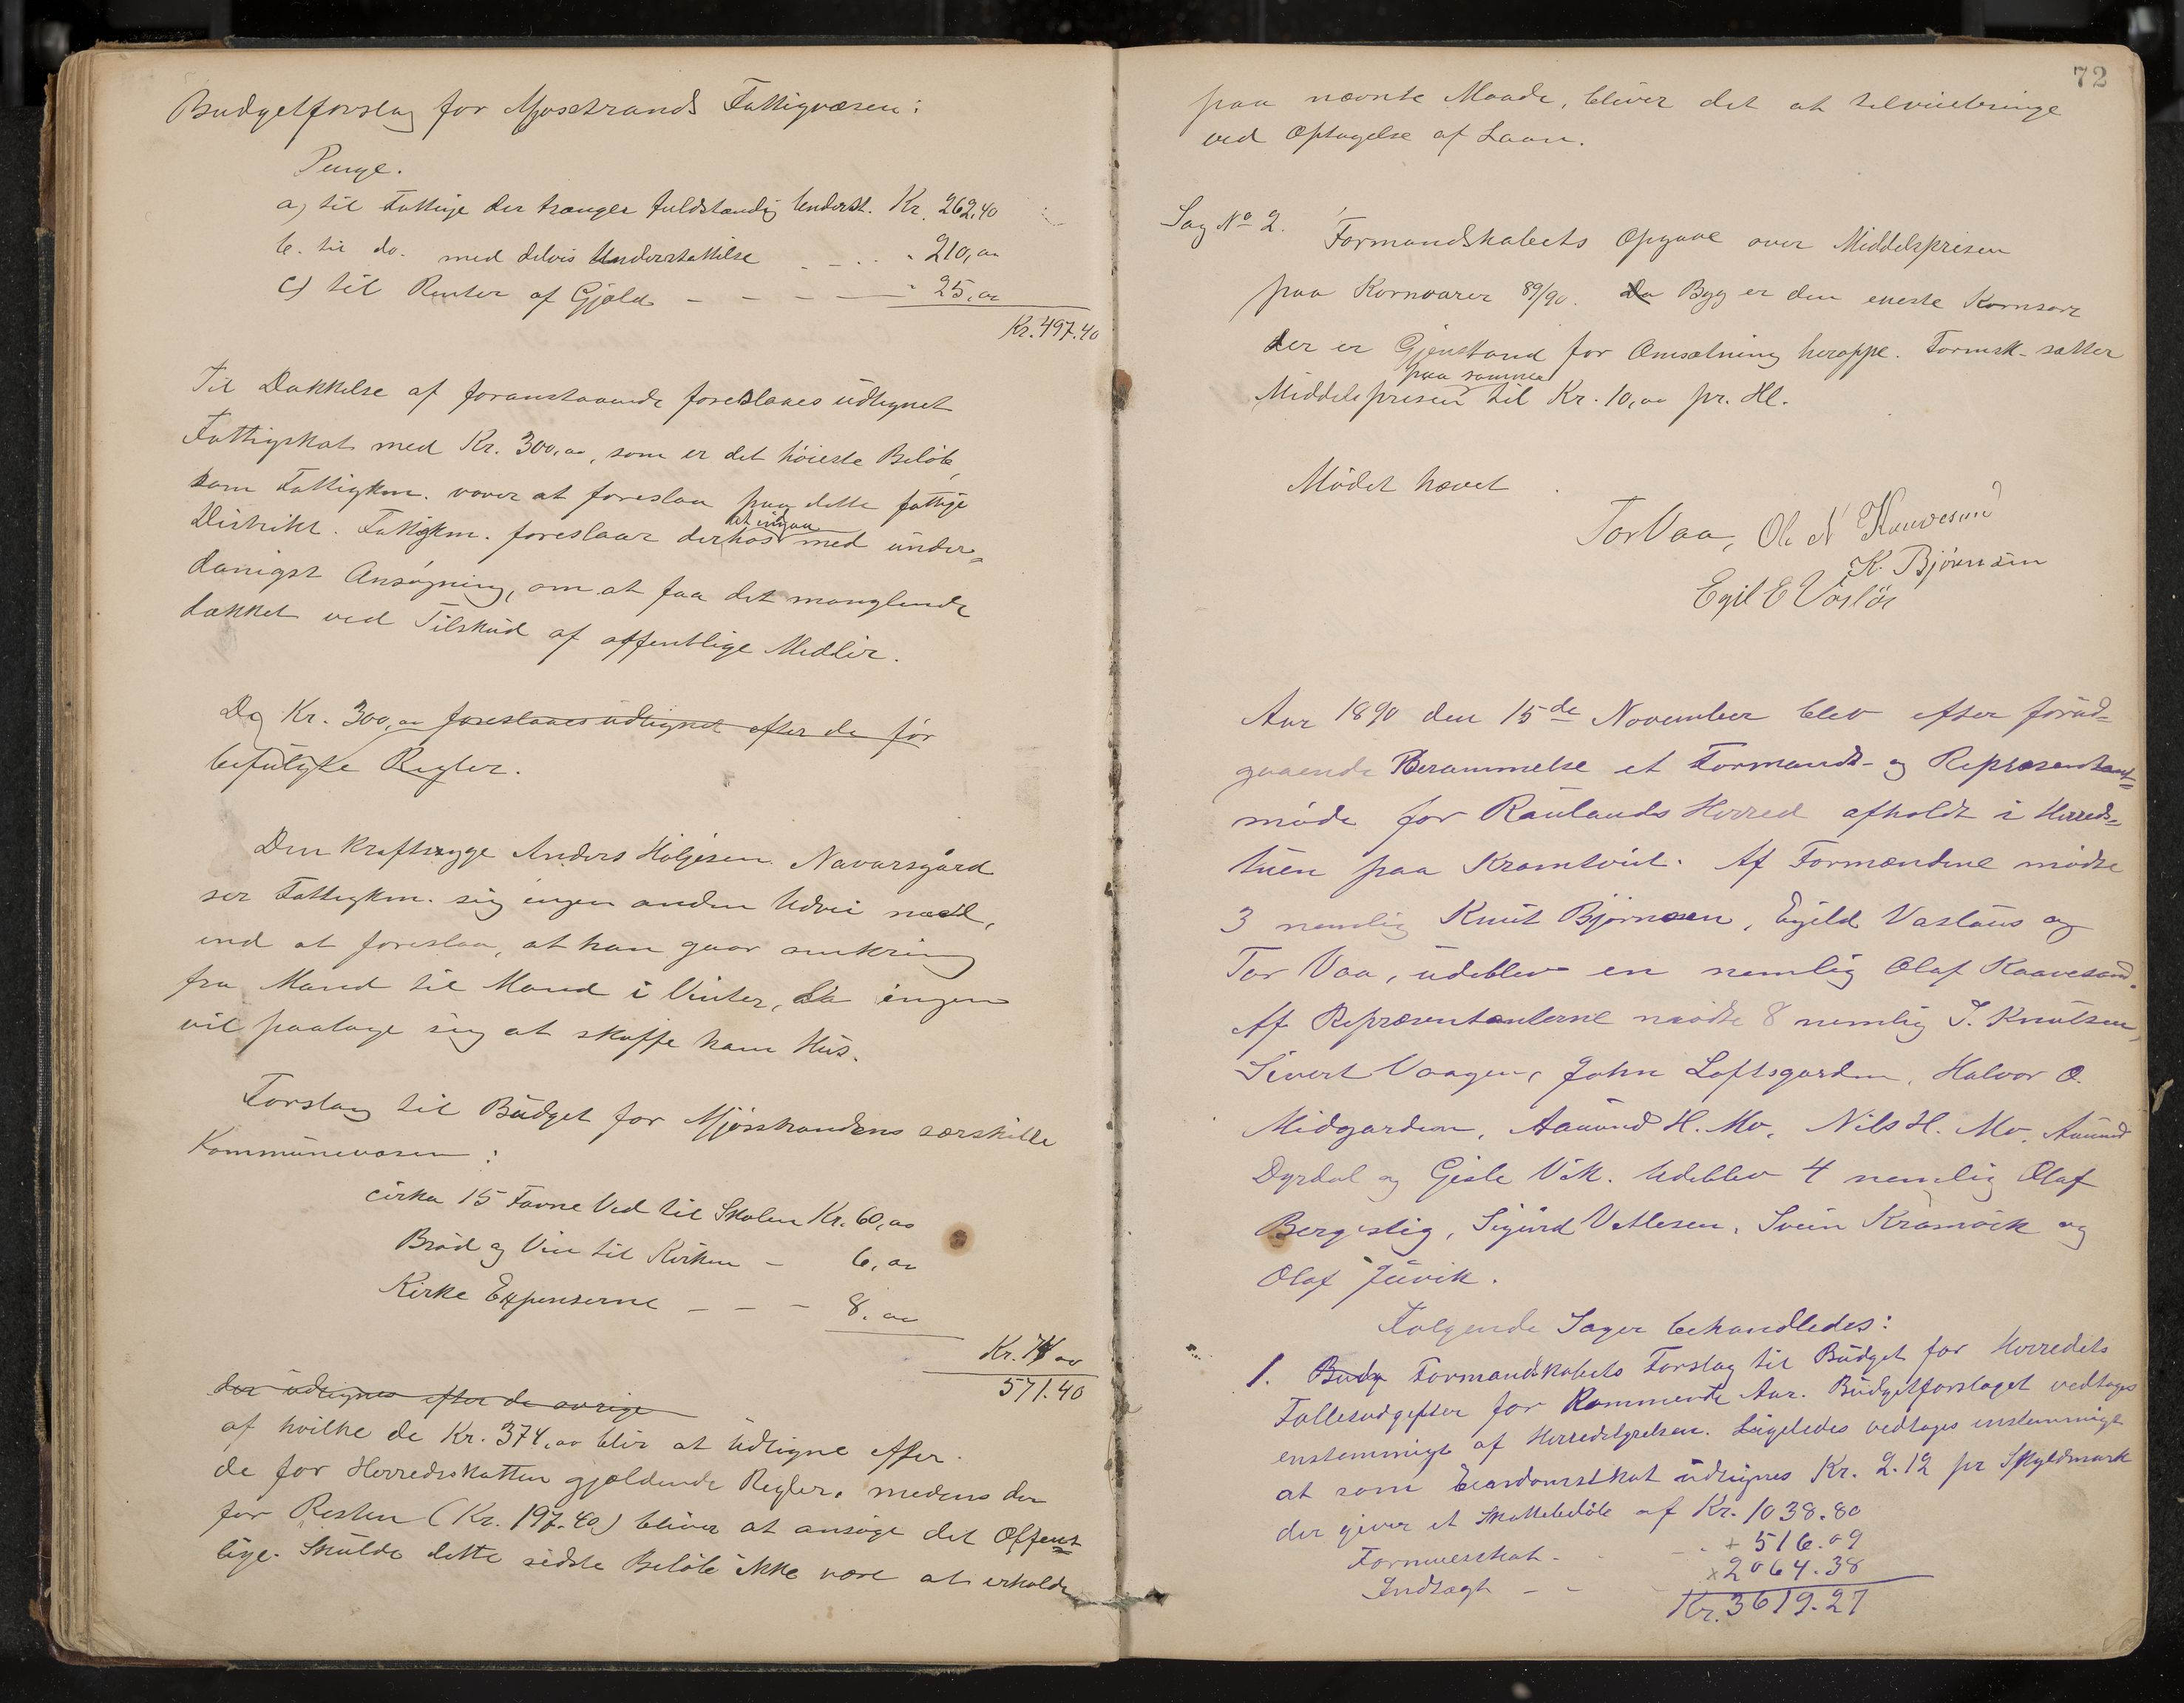 Budgetforslag for Mjøsstrands Fattigvæsen:
Penge.
a, til Fattige der trænger fuldstændig Underst. Kr. 262,40
b. til do. med delvis Understøttelse - - - - 210,00
c) til Renter af Gjæld - - - - 25,00
Kr. 497.40
Til Dækkelse af foranstaaende foreslaaes udlignet
Fattigskat med Kr. 300,00, som er det høieste Beløb,
som Fattigkm. vover at foreslaa paa dette fattige
Distrikt. Fattigkm. foreslaar derhos at indgaa med under-
danigst Ansøgning, om at faa det manglende
dækket ved Tilskud af offentlige Midler.
De Kr. 300,00 foreslaaes udlignet efter de før
befulgte Regler.
Den kraftsvge Anders Holjesen Navarsgård
ser Fattigkm. sig ingen anden Udvei med,
end at foreslaa, at han gaar omkring
fra Mand til Mand i Vinter, da ingen
vil paatage sig at skaffe ham Hus.
Forslag til Budget for Mjøsstrandens særskilte
Kommunevæsen:
cirka 15 Favne Ved til Skolen Kr. 60,00
Brød og Vin til Kirken - 6,00
Kirke Expenserne - - - 8.00
Kr. 74 00
571.40
der udlignes efter de øvrige
af hvilke de Kr. 374,00 blir at udligne efter
de for Herredsskatten gjældende Regler, medens der
for Resten (Kr. 197.40) bliver at ansøge det Offent
lige. Skulde dette sidste Beløb ikke være at erholde
72
paa nævnte Maade, bliver det at tilveiebringe
ved Optagelse af Laan.
Sag No 2. Formandskabets Opgave over Middelprisen
paa Kornvarer 89/90. Da Byg er den eneste Kornsort
der er Gjenstand for Omsætning heroppe. Formsk. sætter
Middelsprisen paa samme til Kr. 10,00 pr. Hl.
Mødet hævet.
Tor Vaa, Ole N Kaavesand
K. Bjørnsen
Egil E Vaslös
Aar 1890 den 15de November blev efter forud-
gaaende Berammelse et Formands- og Repræsentant-
møde for Raulands Herred afholdt i Herreds-
tuen paa Kramtveit. Af Formændene mødte
3 nemlig Knut Bjørnsen, Egild Vaslaus og
Tor Vaa, udeblev en nemlig Olaf Kaavesand.
Af Repræsentanterne mødte 8 nemlig T. Knutsen,
Sivert Vaagen, John Loftsgarden, Halvor O.
Midgarden, Aamund H. Mo, Nils H. Mo, Aamund
Dyrdal og Gisle Vik. Udeblev 4 nemlig Olaf
Bergestig, Sigurd Vetlesen, Svein Kramvik og
Olaf Juvik.
Følgende Sager behandledes:
1. Budg Formandskabets Forslag til Budget for Herredets
Fællesudgifter for Kommende Aar. Budgetforslaget vedtages
enstemmigt af Herredstyrelsen. Ligeledes vedtages enstemmigt
at som Eiendomsskat udlignes Kr. 2.12 pr Skyldmark
der giver et Skattebeløb af Kr. 1038.80
Formueskat - - - + 516.09
Indtægt - - - x 2064.38
Kr. 3619.27